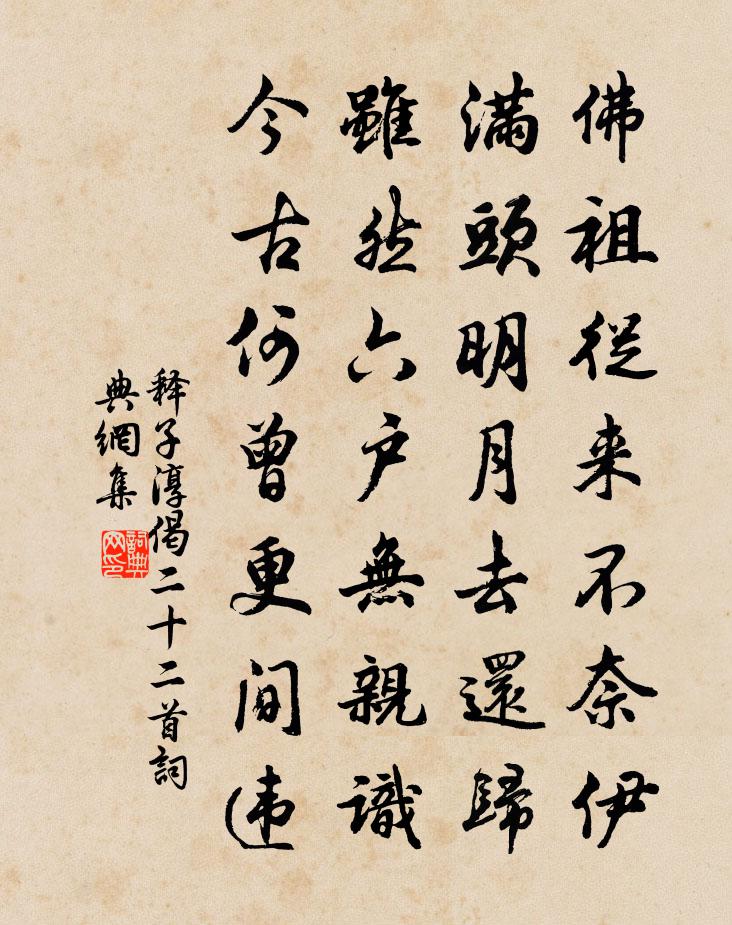 佛祖從来不奈伊
滿頭明月去還歸
雖然六户無親識
今古何曾更间违
释子淳偈二十二首詞
典網集
詞典網印